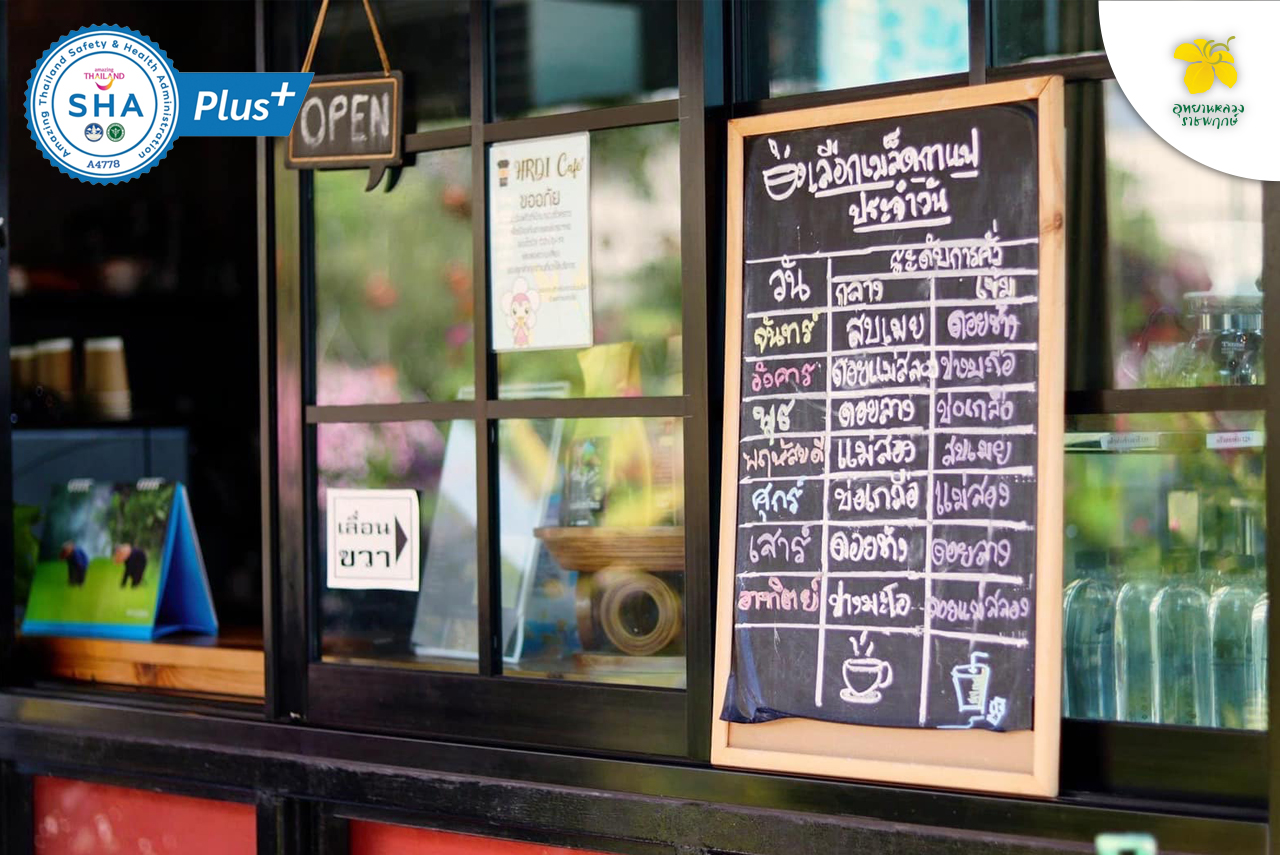 Amazing Thailand Safety & Health Administration
amazing
THAILAND
SHA
Plus+
A4778
OPEN
HRDI Café
ขออภัย
เลื่อน
ขวา
เลือกเมล็ดกาแฟ
ประจำวัน
วัน ระดับการคั่ว
กลาง เข้ม
จันทร์ สบเมย ดอยช้าง
อังคาร ดอยแม่สลอง
พุธ ดอยลาง บ่อเกลือ
พฤหัสบดี แม่สอง สบเมย
ศุกร์ บ่อเกลือ แม่สอง
เสาร์ ดอยช้าง ดอยลาง
อาทิตย์ ปางมะโอ ดอยแม่สลอง
อุทยานหลวง
ราชพฤกษ์